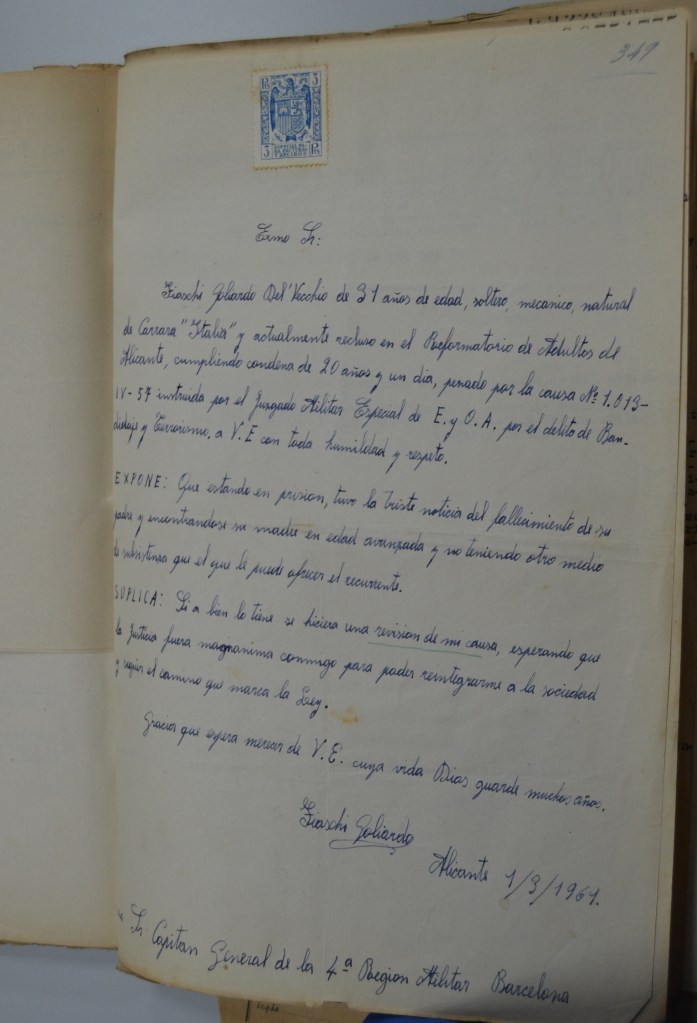 349
3 Pts 3
ESPECIAL MOVIL
3 Pts
Exmo Sr:
Fiaschi Goliardo Del'Vecchio de 31 años de edad, soltero, mecanico, natural
de Carrara "Italia" y actualmente recluso en el Reformatorio de Adultos de
Alicante, cumpliendo condena de 20 años y un dia, penado por la causa Nº 1.013-
IV-57 instruida por el Juzgado Militar Especial de E. y O.A. por el delito de Ban-
didaje y Terrorismo, a V.E con toda humildad y respeto.
EXPONE: Que estando en prision, tuvo la triste noticia del fallecimiento de su
padre y encontrandose su madre en edad avanzada y no teniendo otro medio
de subsistenza que el que le puede ofrecer el recurrente.
SUPLICA: Si a bien lo tiene se hiciera una revision de mi causa, esperando que
la Justicia fuera magnanima conmigo para poder reintegrarme a la sociedad
y seguir el camino que marca la Ley.
Gracia que espera merecer de V.E. cuya vida Dios guarde muchos años.
Fiaschi Goliardo
Alicante 1/3/1961.
Sr Capitan General de la 4ª Region Militar Barcelona